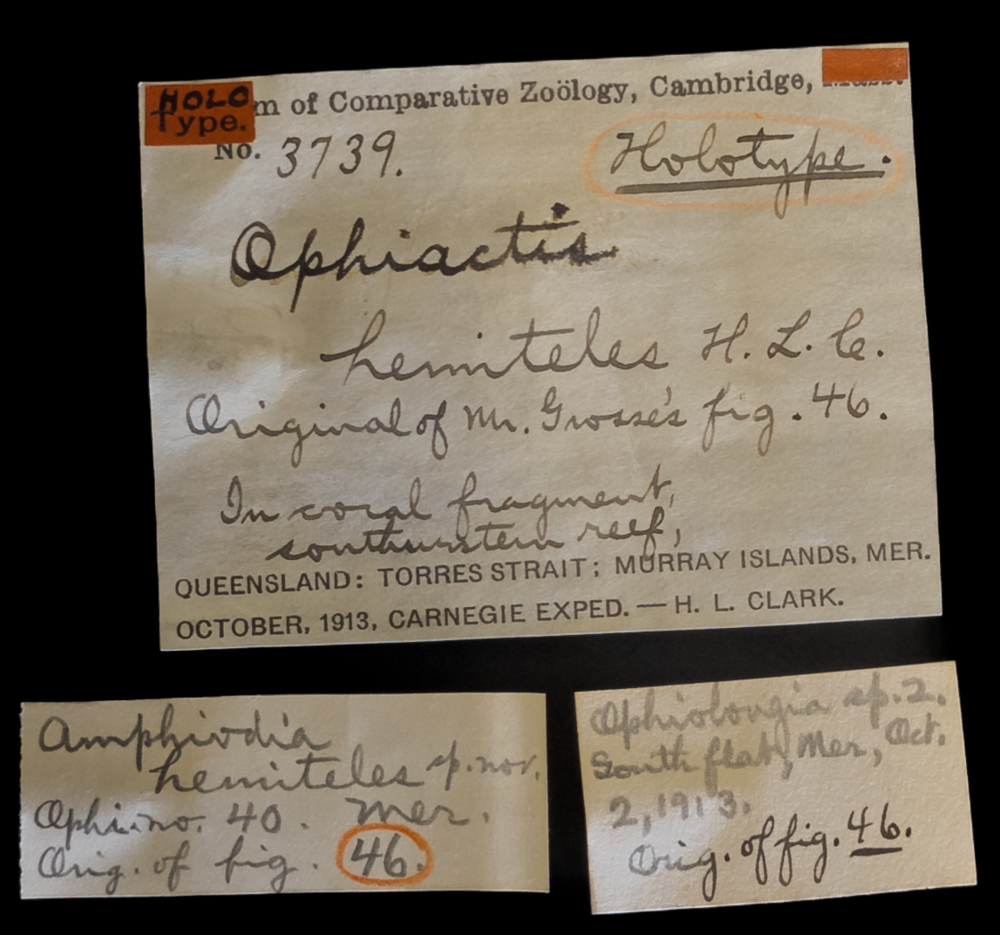 HOLO
Type.
m of Comparative Zoölogy, Cambridge, Mass.
No. 3739.
Holotype.
Ophiactis
hemiteles H. L. C.
Original of Mr. Grosse's fig. 46.
In coral fragment,
southwestern reef,
QUEENSLAND: TORRES STRAIT; MURRAY ISLANDS, MER.
OCTOBER, 1913, CARNEGIE EXPED. — H. L. CLARK.
Amphiodia
hemiteles sp. nov.
Ophi. no. 40. Mer.
Orig. of fig. 46.
sp. 2.
South flat, Mer, Oct.
2, 1913.
Orig. of fig. 46.